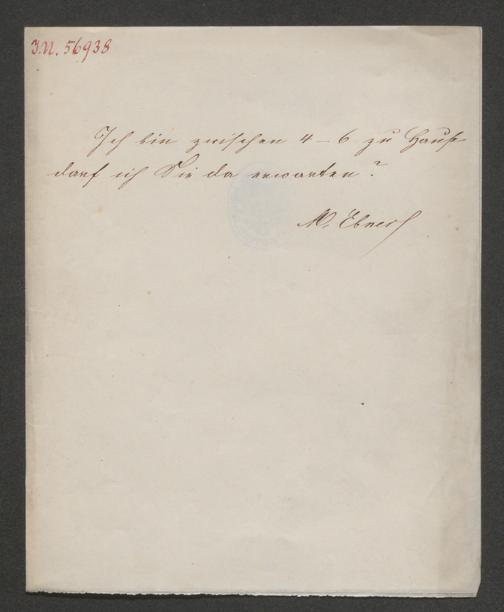 I.N. 56938
Ich bin zwischen 4 – 6 zu Hause
darf ich Sie da erwarten?
M. Ebner